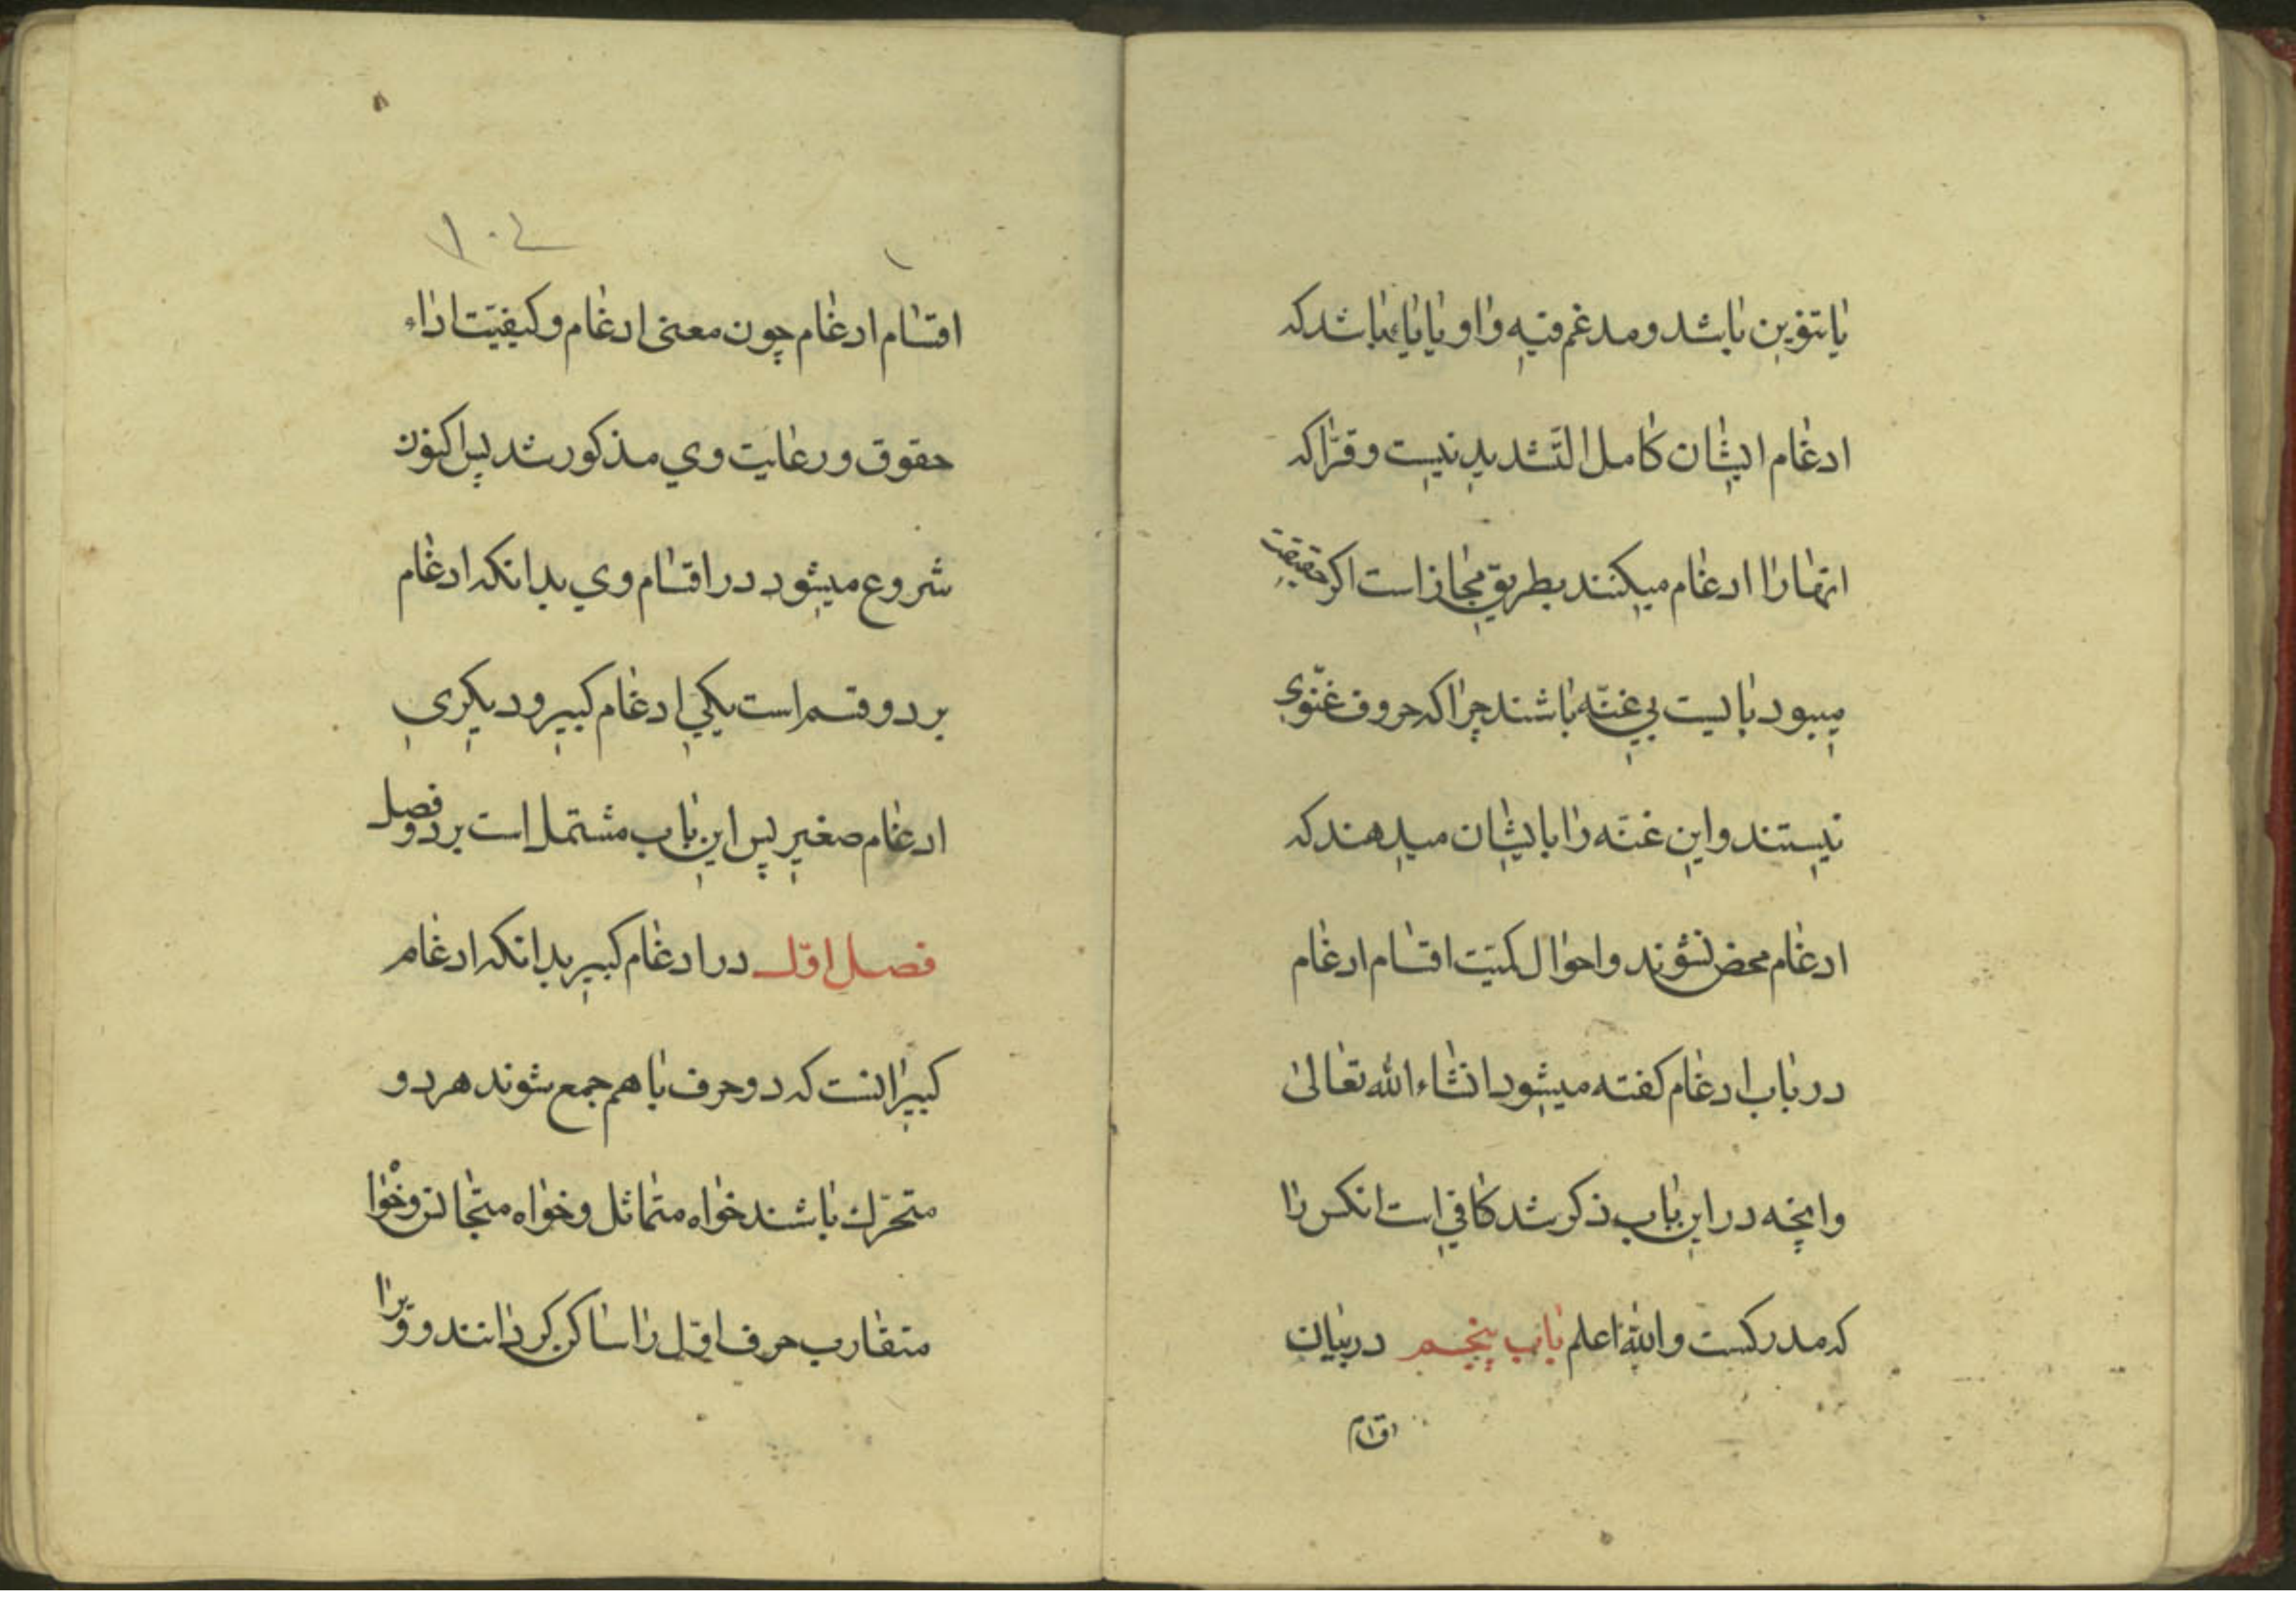 یا تنوین باشد و مدغم فیه واو یا یاء باشد که
ادغام ایشان کامل التشدید نیست و قرّا که
انها را ادغام میکنند بطریق مجاز است اکر حقیقت
میبود بایست بی غنّه باشند چرا که حروف غنّوی
نیستند و این غنّه را بایشان میدهند که
ادغام محض نشوند و احوال کمیّت اقسام ادغام
در باب ادغام کفته میشود انشاء الله تعالی
و انچه در این باب ذکر شد کافی است انکس را
که مدرکست والله اعلم باب پنجم در بیان
اقسام
۱۰۴
اقسام ادغام چون معنی ادغام و کیفیّت اداء
حقوق و رعایت وی مذکور شد پس اکنون
شروع میشود در اقسام وی بدانکه ادغام
بر دو قسم است یکی ادغام کبیر و دیکری
ادغام صغیر پس این باب مشتمل است بر دو فصل
فصل اوّل در ادغام کبیر بدانکه ادغام
کبیر انست که دو حرف با هم جمع شوند هر دو
متحرّك باشند خواه متماثل و خواه متجانس و خواه
متقارب حرف اوّل را ساکن کردانند و ویرا